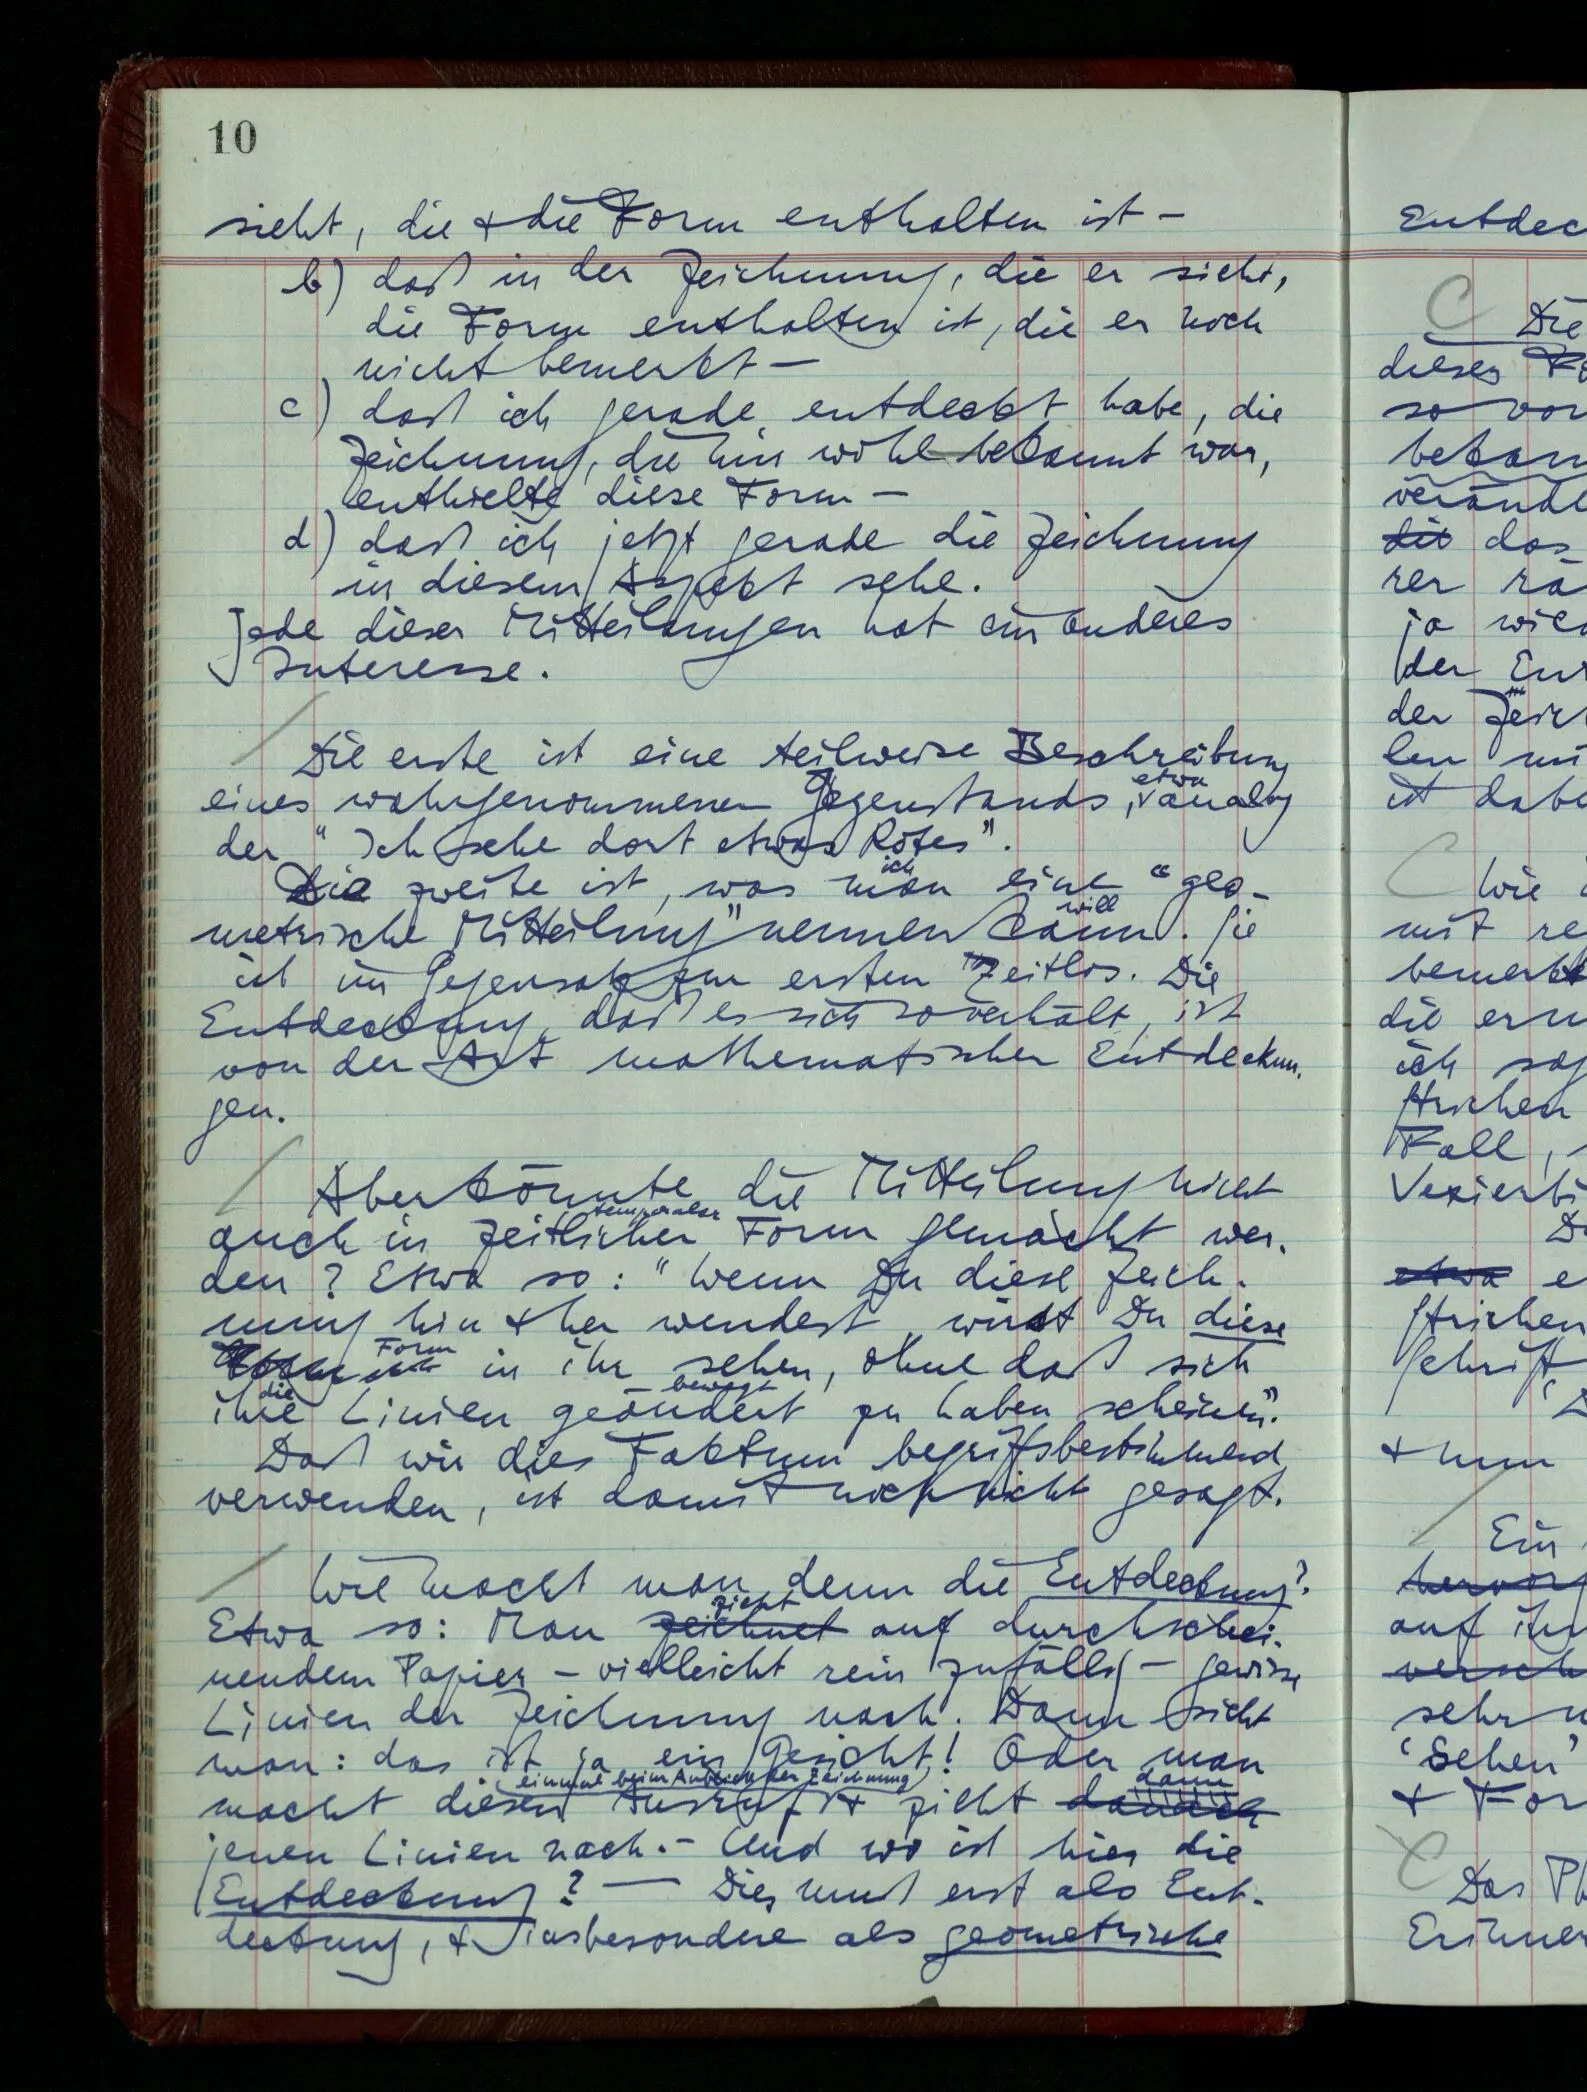 10
sieht, die & die Form enthalten ist –
b) daß in der Zeichnung, die er sieht,
die Form enthalten ist, die er noch
nicht bemerkt –
c) daß ich gerade entdeckt habe, die
Zeichnung, die mir wohl bekannt war,
enthielte diese Form –
d) daß ich jetzt gerade die Zeichnung
in diesem Aspekt sehe.
Jede dieser Mitteilungen hat ein anderes
Interesse.
Die erste ist eine teilweise Beschreibung
etwa
eines wahrgenommenen Gegenstands, analog
der “Ich sehe dort etwas Rotes”.
ich
Die zweite ist, was man eine “geo-
will
metrische Mitteilung” nennen kann. Sie
ist im Gegensatz zur ersten zeitlos. Die
Entdeckung, daß es sich so verhält, ist
von der Art mathematischer Entdeckun-
gen.
Aber könnte die Mitteilung nicht
temporaler
auch in zeitlicher Form gemacht wer-
den? Etwa so: “Wenn Du diese Zeich-
nung hin & her wendest, wirst Du diese
Form
in ihr sehen, ohne daß sich
die bewegt
ihre Linien geändert zu haben scheinen”.
Daß wir dies Faktum begriffsbestimmend
verwenden, ist damit noch nicht gesagt.
Wie macht man denn die Entdeckung?
zieht
Etwa so: Man zeichnet auf durchschei-
nendem Papier – vielleicht rein zufällig – gewisse
Linien der Zeichnung nach. Dann sieht
man: das ist ja ein Gesicht! Oder man
einmal beim Anblick der Zeichnung dann
macht diesen Ausruf & zieht danach
jenen Linien nach. – Und wo ist hier die
Entdeckung? — Dies muß erst als Ent-
deckung, & insbesondere als geometrische
Entdec
C Die
dieses
so vor
bekan
verände
die das
rer rä
ja wie
der
der Zeich
len
ist dabe
C Wie
mit re
bemerkt
die
ich sag
Strichen
Fall,
Vexierbi
etwa e
Strichen
Schrift,
& nun
Ein
hervor
auf ihn
versch
sehr
‘Sehen’
& For
C Das Ph
Erinner